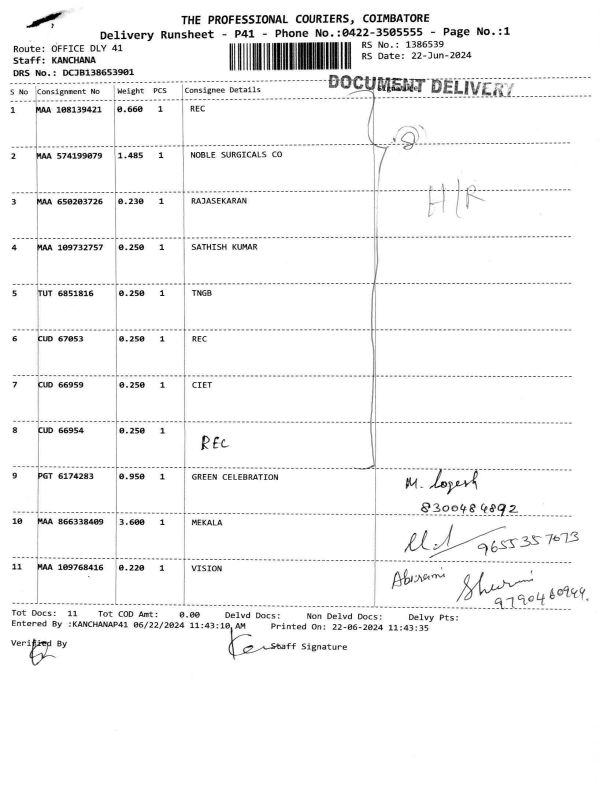 THE PROFESSIONAL COURIERS, COIMBATORE
Delivery Runsheet - P41 - Phone No.:0422-3505555 - Page No.:1
Route: OFFICE DLY 41
RS No.: 1386539
Staff: KANCHANA
RS Date: 22-Jun-2024
DRS No.: DCJB138653901
DOCUMENT DELIVERY
S No Consignment No Weight PCS Consignee Details Signature
1 MAA 108139421 0.660 1 REC
2 MAA 574199079 1.485 1 NOBLE SURGICALS CO
3 MAA 650203726 0.230 1 RAJASEKARAN
H/R
4 MAA 109732757 0.250 1 SATHISH KUMAR
5 TUT 6851816 0.250 1 TNGB
6 CUD 67053 0.250 1 REC
7 CUD 66959 0.250 1 CIET
8 CUD 66954 0.250 1 REC
9 PGT 6174283 0.950 1 GREEN CELEBRATION M. Logesh
8300484892
10 MAA 866338409 3.600 1 MEKALA 9655357073
11 MAA 109768416 0.220 1 VISION Abirami
9790460944.
Tot Docs: 11 Tot COD Amt: 0.00 Delvd Docs: Non Delvd Docs: Delvy Pts:
Entered By :KANCHANAP41 06/22/2024 11:43:10 AM Printed On: 22-06-2024 11:43:35
Verified By Staff Signature